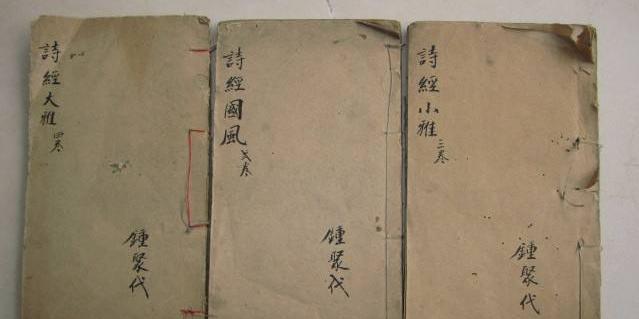 詩經大雅 四卷
鍾聚代
詩經國風
鍾聚代
詩經小雅 三卷
鍾聚代